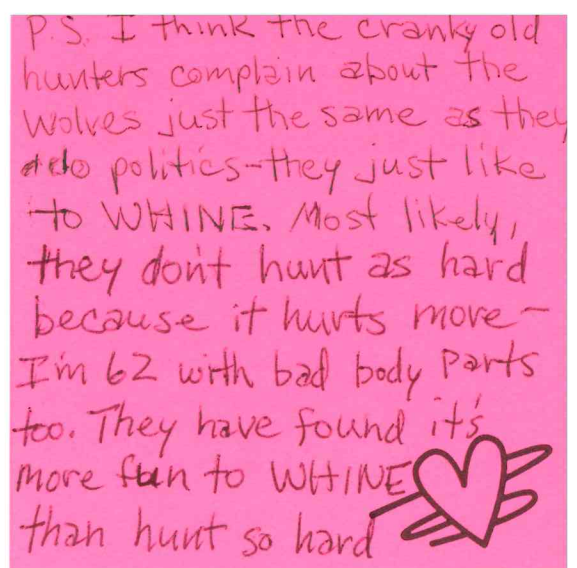 P.S. I think the cranky old
hunters complain about the
wolves just the same as they
do politics-they just like
to WHINE. Most likely,
they don't hunt as hard
because it hurts more-
I'm 62 with bad body parts
too. They have found it's
more fun to WHINE
than hunt so hard